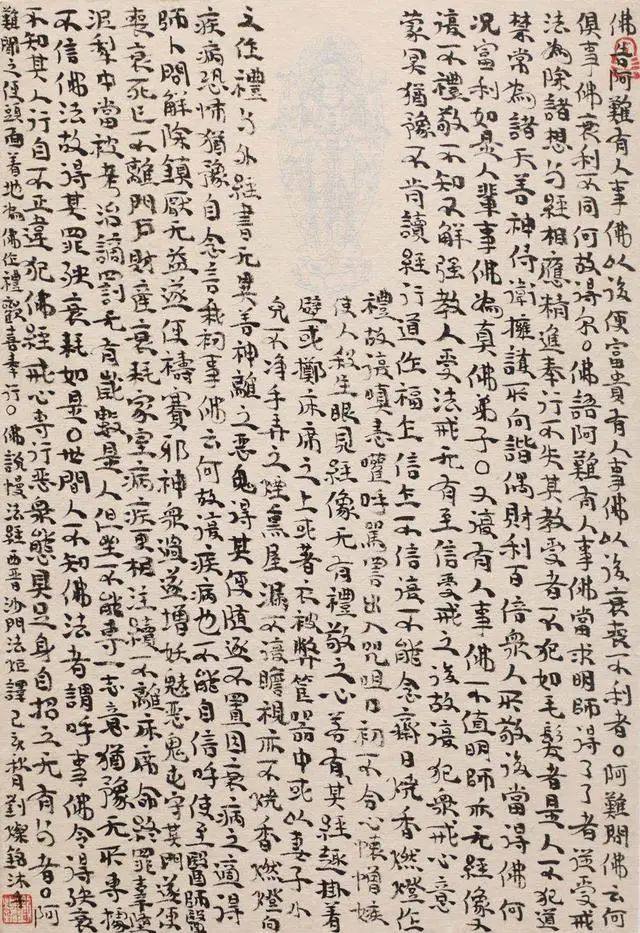 佛告阿難有人事佛以後便富貴有人事佛以後衰喪不利者○阿難問佛云何
俱事佛衰利不同何故得尔○佛語阿難有人事佛當求明師得了了者從受戒
法為除諸想与經相應精進奉行不失其教受者不犯如毛髮者是人不犯道
禁常為諸天善神侍衛擁護所向諧偶財利百倍眾人所敬後當得佛何
況富利如是人輩事佛為真佛弟子○又復有人事佛不值明師亦无經像又
復不禮敬不知不解強教人受法戒无有至信受戒之後故復犯眾戒心意
蒙冥猶豫不肯讀經行道作福乍信乍不信復不能念齋日燒香燃燈作
禮故復瞋恚嚾呼罵詈出入咒咀口初不合心懷憎嫉
使人殺生眼見經像无有禮敬之心若有其經趣掛着
壁或擲床席之上或著衣被弊篋器中或以妻子小
兒不净手弄之煙熏屋漏不復瞻視亦不燒香燃燈向
之作禮与外經書无異善神離之惡鬼得其便隨逐不置因衰病之適得
疾病恐怖猶豫自念言我祠事佛云何故復疾病也不能自信呼使至醫師醫
師卜問解除鎮厭无益遂便禱賽邪神眾過遂增妖魅惡鬼屯守其門遂使
喪衰死亡不離門戶財產衰耗家室病疾更相注續不離床席命終罪牽墮
泥犁中當被考治謫罰无有歲數是人但坐不能專一志意猶豫无所專據
不信佛法故得其罪殃衰耗如是○世間人不知佛法者謂呼事佛令得殃衰
不知其人行自不正違犯佛經戒心專行惡眾態具足身自招之无有与者○阿
難聞之便頭面着地為佛作禮歡喜奉行○佛說慢法經西晉沙門法炬譯 己亥秋月劉燦銘沐手